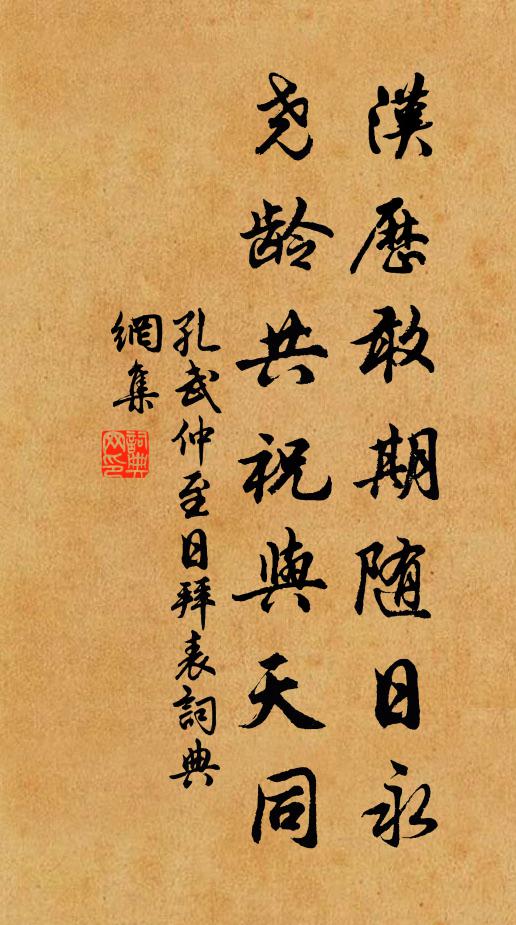 漢歷敢期随日永
尧龄共祝與天同
孔武仲至日拜表詞典
網集
詞典
网印